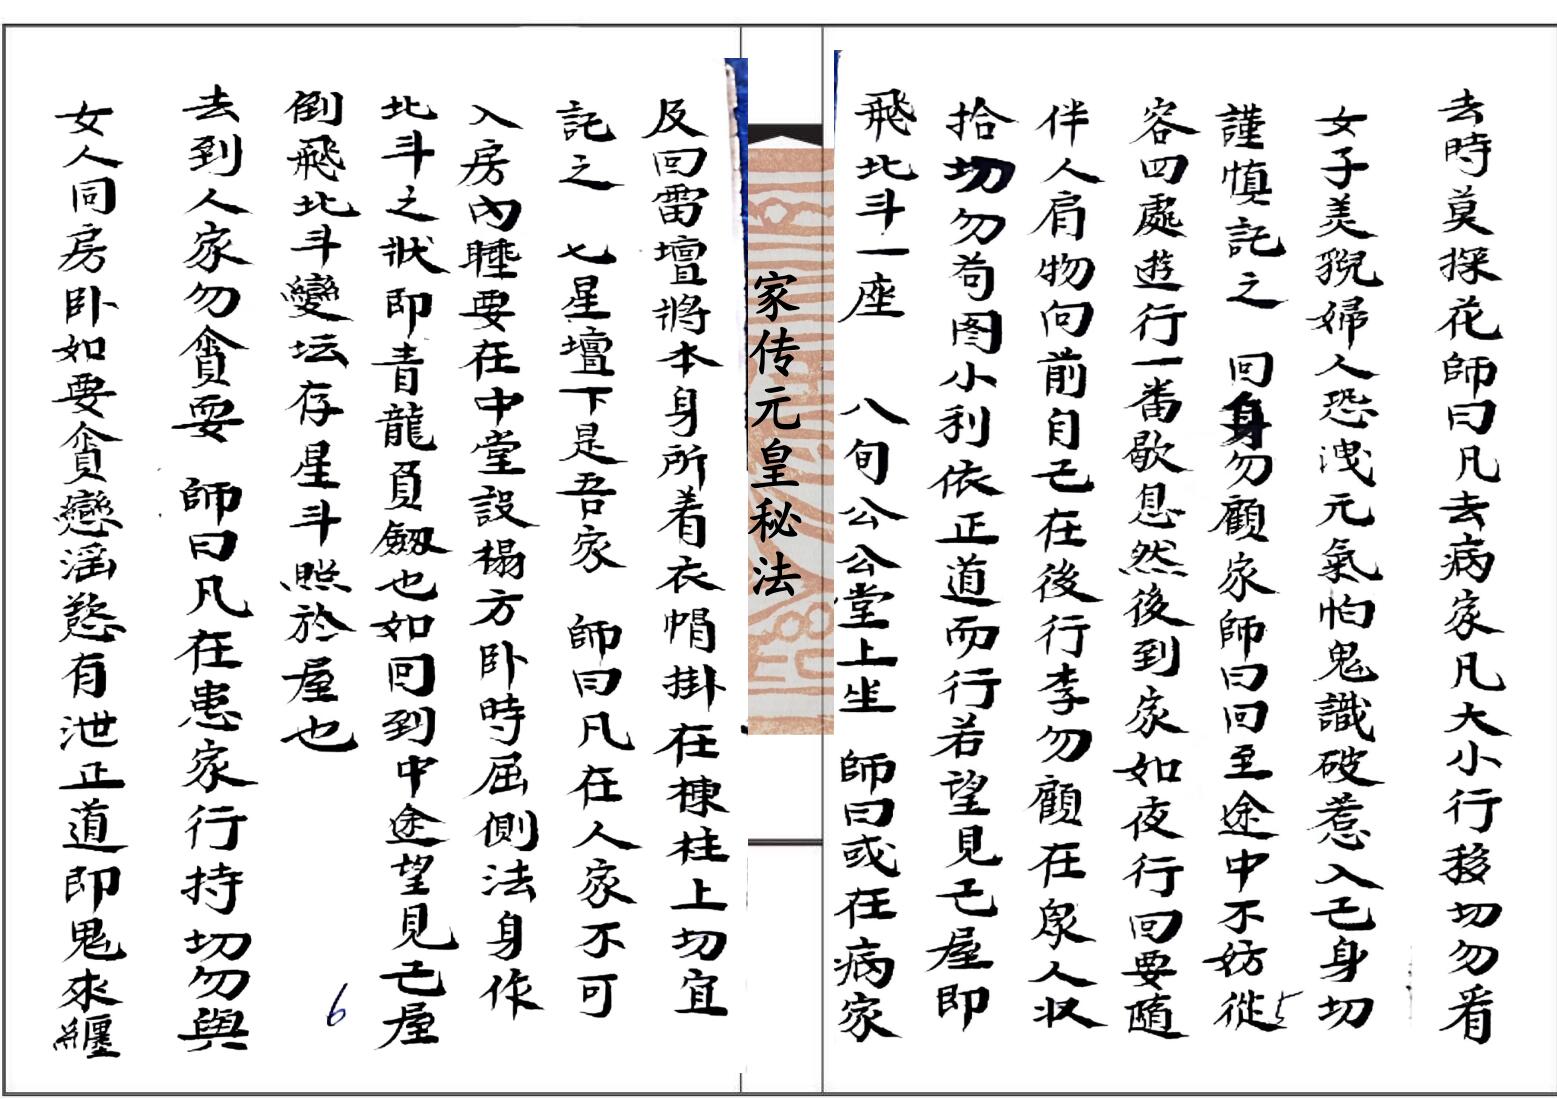 去時莫採花師曰凡去病家凡大小行移切勿看
女子美貌婦人恐洩元氣怕鬼識破惹入己身切
謹慎記之 回身勿顧家師曰回至途中不妨從
容四處遊行一番歇息然後到家如夜行回要隨
伴人肩物向前自己在後行李勿顧在衆人收
拾切勿苟图小利依正道而行若望見己屋即
飛北斗一座 八旬公公堂上坐 師曰或在病家
家传元皇秘法
及回雷壇將本身所着衣帽掛在棟柱上切宜
記之 七星壇下是吾家 師曰凡在人家不可
入房內睡要在中堂設榻方卧時屈側法身作
北斗之狀即青龍負劔也如回到中途望見己屋
倒飛北斗變坛存星斗照於屋也
去到人家勿貪要 師曰凡在患家行持切勿與
女人同房卧如要貪戀滛慾有泄正道即鬼來纏
5
6